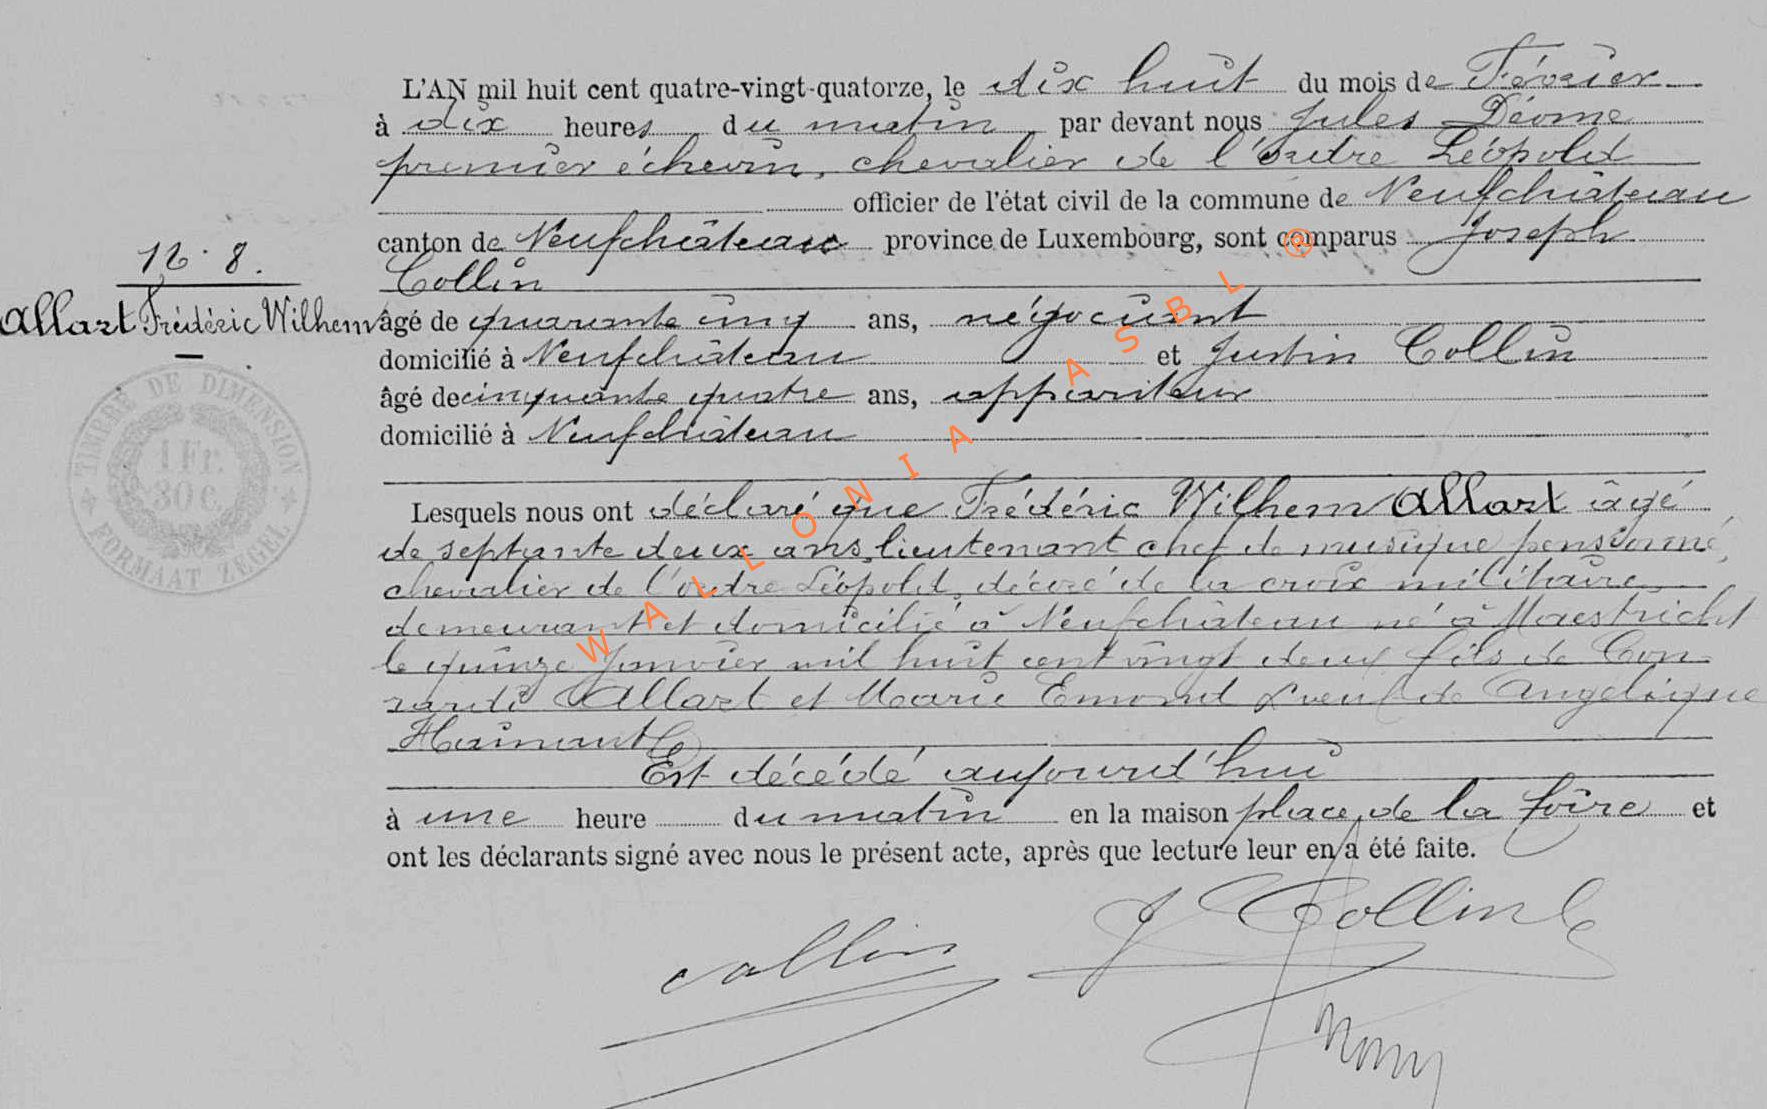 L'AN mil huit cent quatre-vingt-quatorze, le dix huit du mois de Février
à dix heures du matin par devant nous Jules Déome
premier échevin, chevalier de l'ordre Léopold
officier de l'état civil de la commune de Neufchâteau
canton de Neufchâteau province de Luxembourg, sont comparus Joseph
Collin
âgé de quarante cinq ans, négociant
domicilié à Neufchâteau et Justin Collin
âgé de cinquante quatre ans, appariteur
domicilié à Neufchâteau
16. 8.
Allart Frédéric Wilhem
TIMBRE DE DIMENSION
1 Fr.
30 c.
FORMAAT ZEGEL
Lesquels nous ont déclaré que Frédéric Wilhem Allart âgé
de septante deux ans, lieutenant chef de musique pensionné,
chevalier de l'ordre Léopold, décoré de la croix militaire,
demeurant et domicilié à Neufchâteau né à Maestricht
le quinze Janvier mil huit cent vingt deux fils de Con-
rardi Allart et Marie Emond veuf de Angélique
Hainaut
Est décédé aujourd'hui
à une heure du matin en la maison place de la foire et
ont les déclarants signé avec nous le présent acte, après que lecture leur en a été faite.
Collin
J Collin
WALLONIA ASBL ®